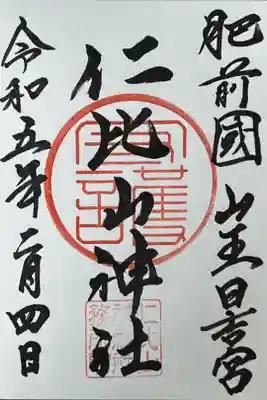 肥前國 山王日吉宮
仁比山神社
令和五年二月四日